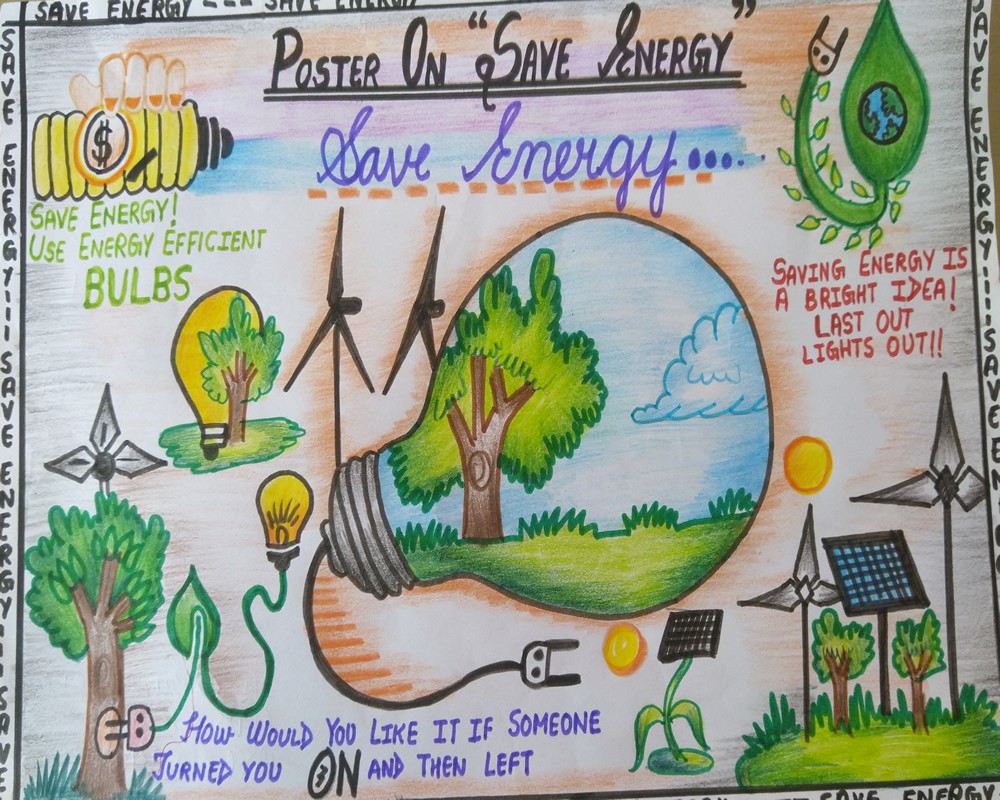 SAVE ENERGY --- SAVE ENERGY
POSTER ON "SAVE ENERGY"
Save Energy.....
$
SAVE ENERGY!
USE ENERGY EFFICIENT
BULBS
SAVING ENERGY IS
A BRIGHT IDEA!
LAST OUT
LIGHTS OUT!!
HOW WOULD YOU LIKE IT IF SOMEONE
TURNED YOU ON AND THEN LEFT
SAVE ENERGY...! SAVE ENERGY... SAVE
SAVE ENERGY.....SAVE
SAVE ENERGY